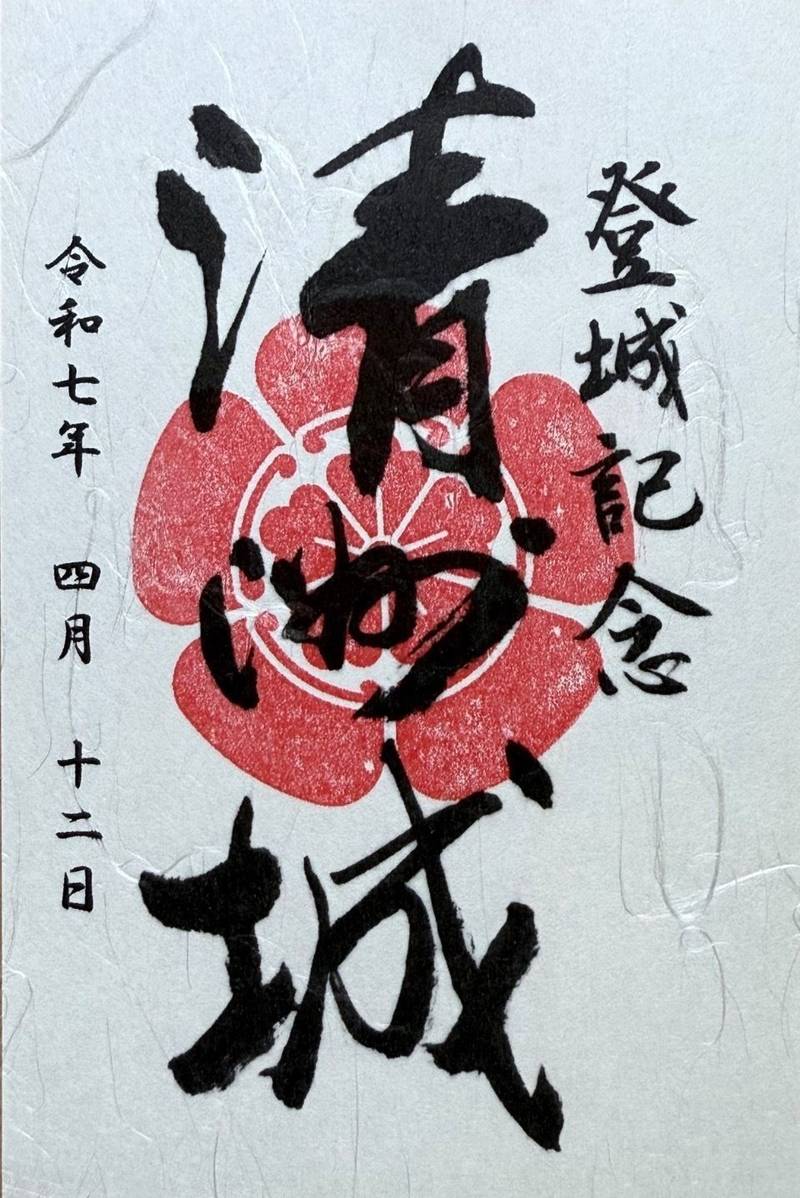 登城記念
清洲城
令和七年 四月 十二日